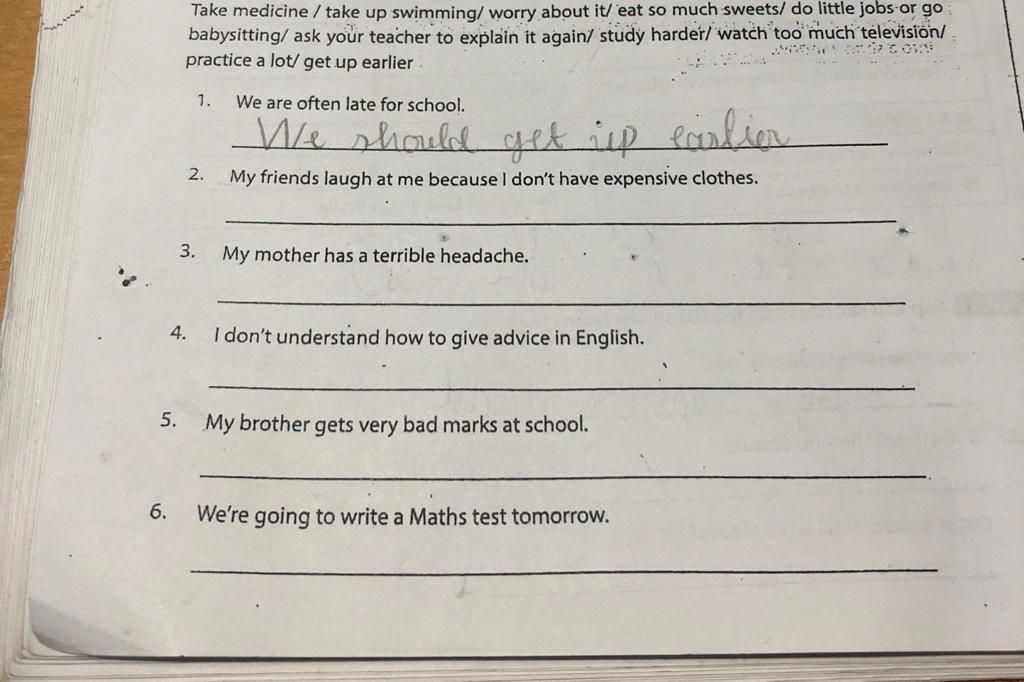 Take medicine / take up swimming/ worry about it/ eat so much sweets/ do little jobs or go
babysitting/ ask your teacher to explain it again/ study harder/ watch too much television/
practice a lot/ get up earlier
1. We are often late for school.
We should get up earlier
2. My friends laugh at me because I don't have expensive clothes.
3. My mother has a terrible headache.
4. I don't understand how to give advice in English.
5. My brother gets very bad marks at school.
6. We're going to write a Maths test tomorrow.